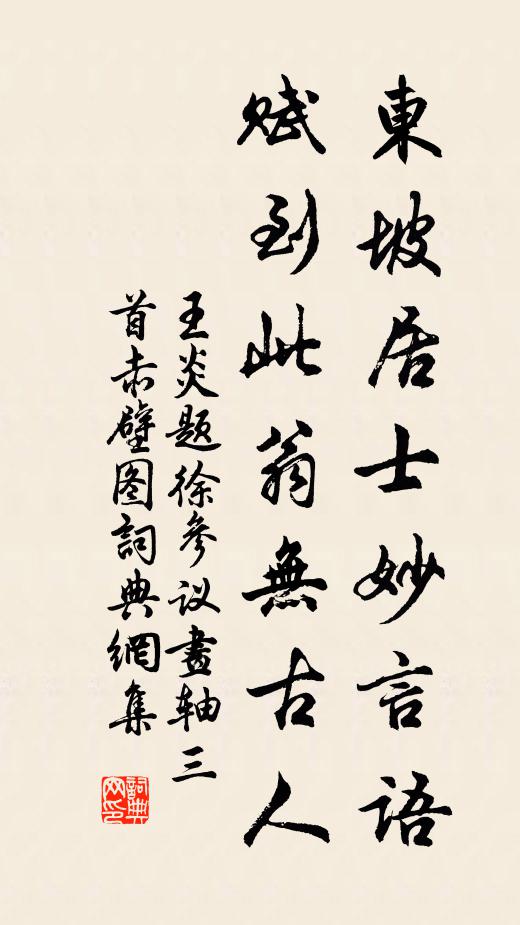 東坡居士妙言語
賦到此翁無古人
王炎题徐參议畫轴三
首赤壁图詞典網集
詞典
网印